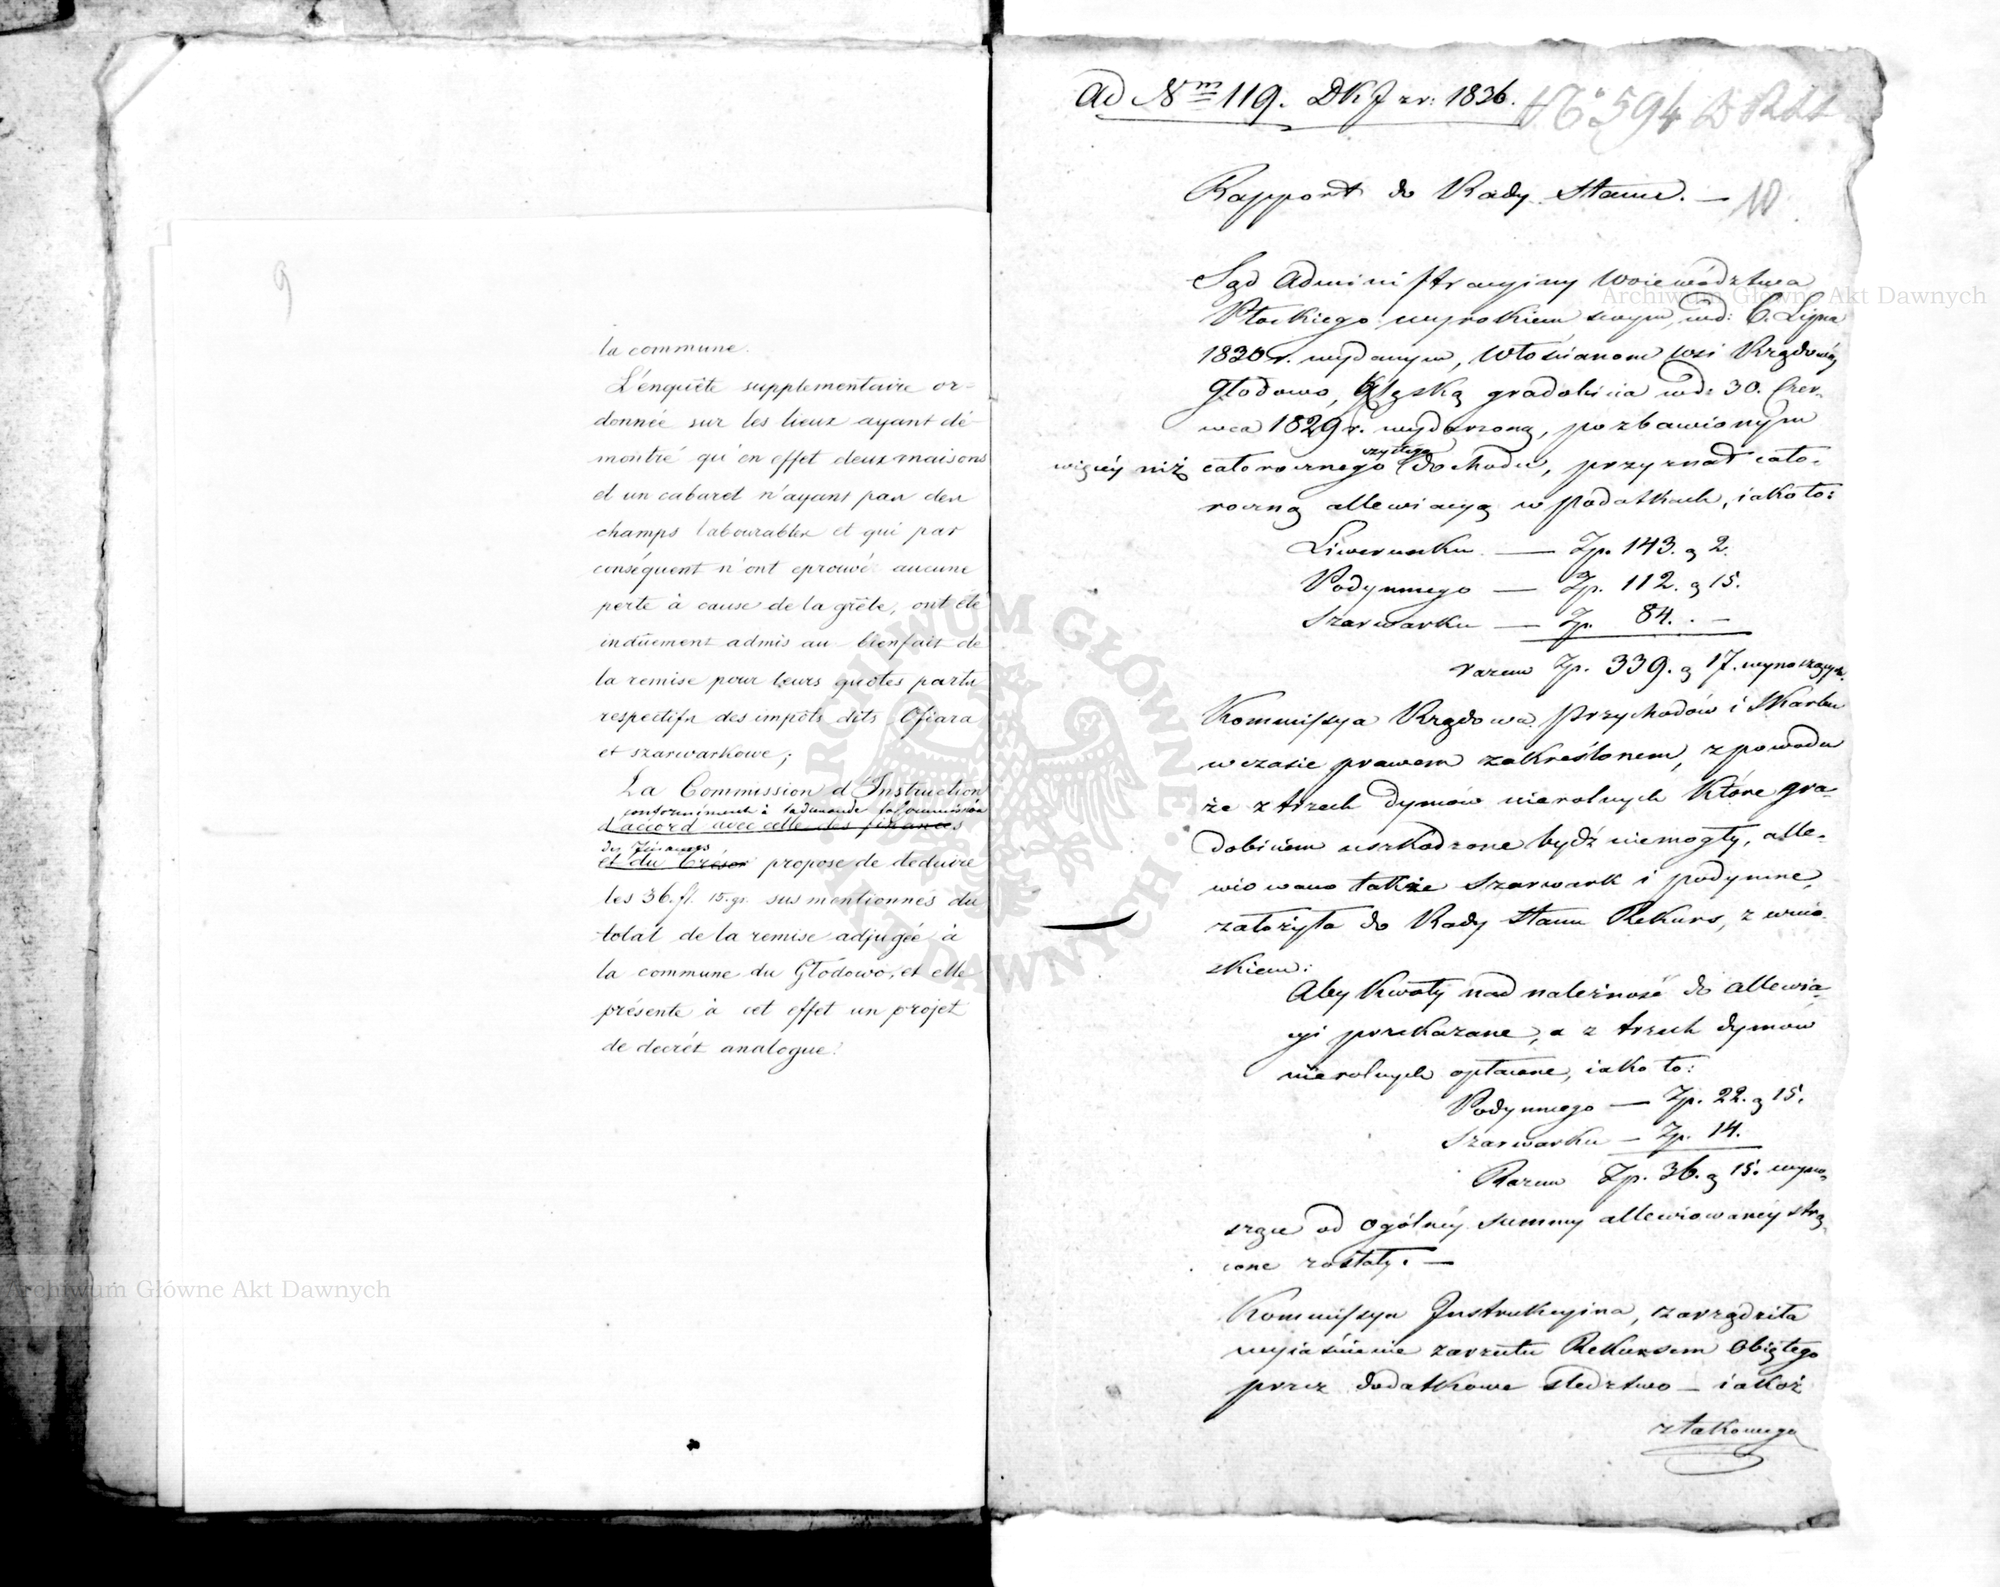 9
la commune.
L'enquête supplementaire or-
donnée sur les lieux ayant dé-
montré qu'en effet deux maisons
et un cabaret n'ayant pas des
champs labourables et qui par
conséquent n'ont eprouvé aucune
perte à cause de la grêle, ont été
indûement admis au bienfait de
la remise pour leurs quotes parts
respectifs des impôts dits Ofiara
et szarwarkowe;
La Commission d'Instruction
conformément à la demande de la Commission
d'accord avec celle des finances
des Finances
et du Trésor propose de deduire
les 36. fl. 15. gr. sus mentionnés du
total de la remise adjugée à
la commune du Głodowo, et elle
présente à cet effet un projet
de decrét analogue.
Ad Nm 119. DKJ zr: 1836.
No 594
Rapport do Rady Stanu. —
10
Sąd Administracyjny Woiewództwa
Płockiego wyrokiem swym, wd: 6. Lipca
1830 r. wydanym, Włościanom wsi Rządowéy
Głodowo, Klęską gradobicia wd: 30. Czer-
wca 1829 r. wydarzoną, pozbawionym
czystego
więcéy niż całorocznego dochodu, przyznał cało-
roczną allewiacyą w podatkach, iako to:
Liwerunku — Zp. 143. g 2.
Podymnego — Zp. 112. g 15.
Szarwarku — Zp. 84. . —
razem Zp. 339. g 17. wynoszącą.
Kommissya Rządowa Przychodów i Skarbu
w czasie prawem zakreślonem, z powodu
że z trzech dymów nierolnych które gra-
dobiciem uszkodzone bydź niemogły, alle-
wiowano także Szarwark i podymne,
założyła do Rady Stanu Rekurs, z wnio-
skiem:
Aby Kwoty nad należność do allewia-
cyi przekazane, a z trzech dymów
nierolnych opłacone, iako to:
Podymnego — Zp. 22. g 15.
Szarwarku — Zp. 14.
Razem Zp. 36. g 15. wyno-
szące od ogólnéy summy allewiowanéy strą-
cone zostały. —
Kommissya Instrukcyina, zarządziła
wyiaśnienie zarzutu Rekursem Obiętego
przez dodatkowe sledztwo — iakoż
z takowego
Archiwum Główne Akt Dawnych
Archiwum Główne Akt Dawnych
ARCHIWUM GŁÓWNE AKT DAWNYCH